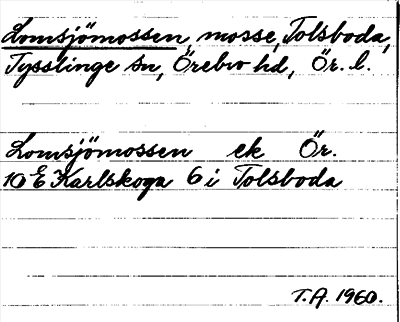 Lomsjömossen, mosse, Tolsboda,
Tysslinge sn, Örebro hd, Ör. l.
Lomsjömossen ek Ör.
10 E Karlskoga 6 i Tolsboda
T.A. 1960.